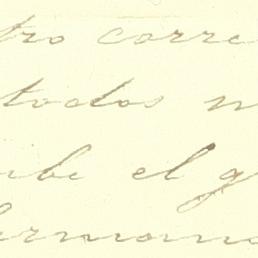 tro corre
todos n
ibe el g
hermano